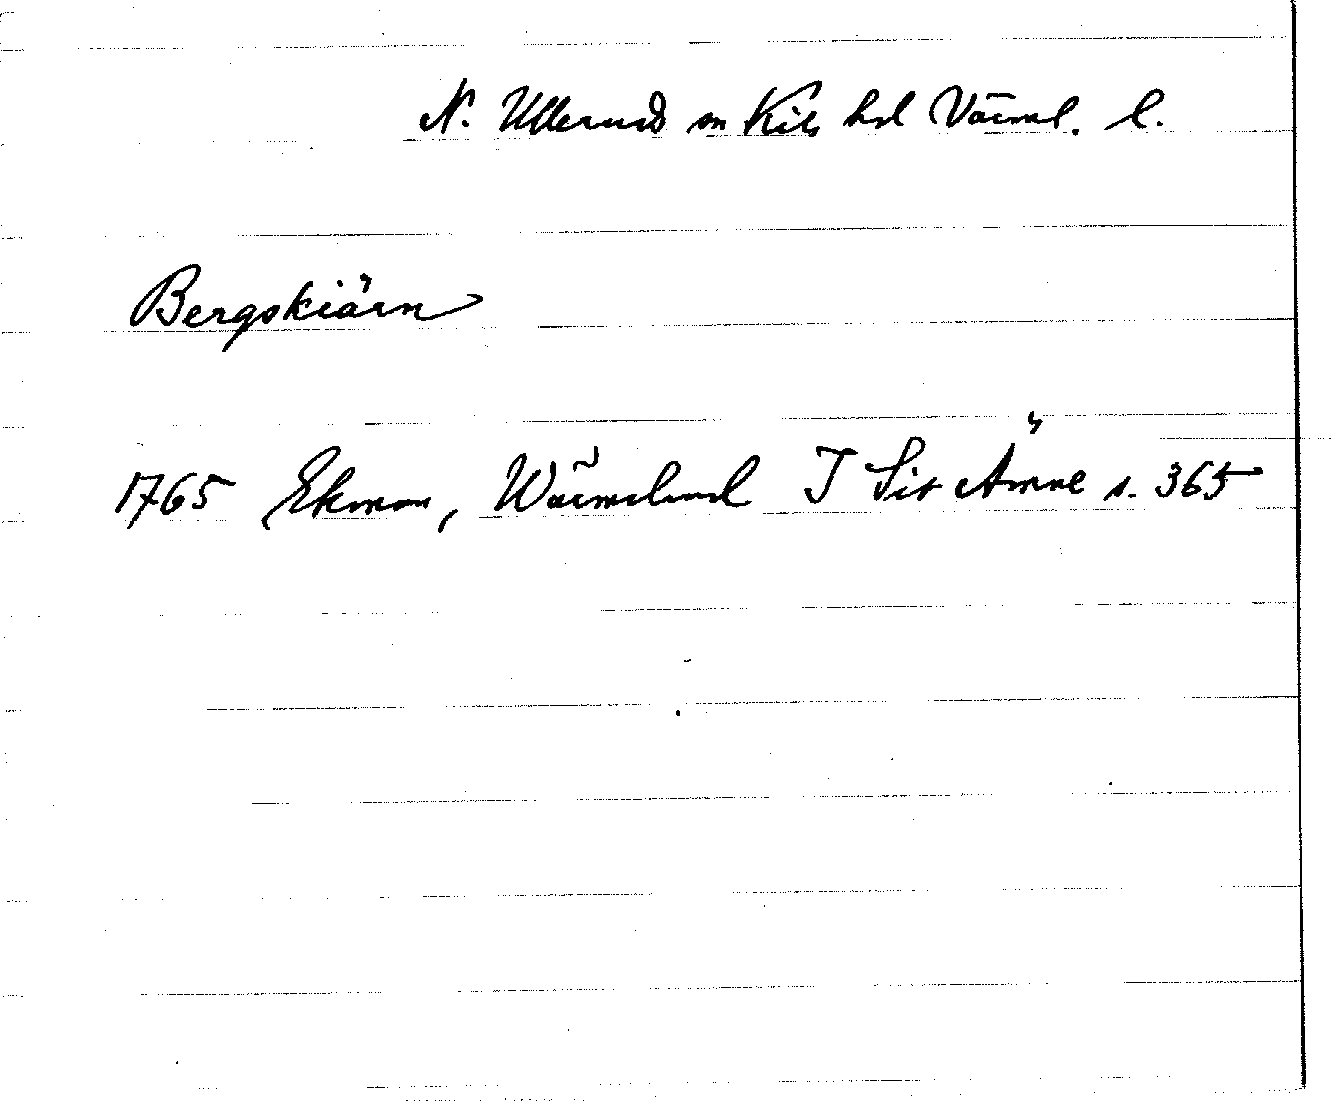 N. Ullerud sn Kils hd Värml. l.
Bergskiärn
1765 Ekman, Wärmeland I Sit Ämne s. 365